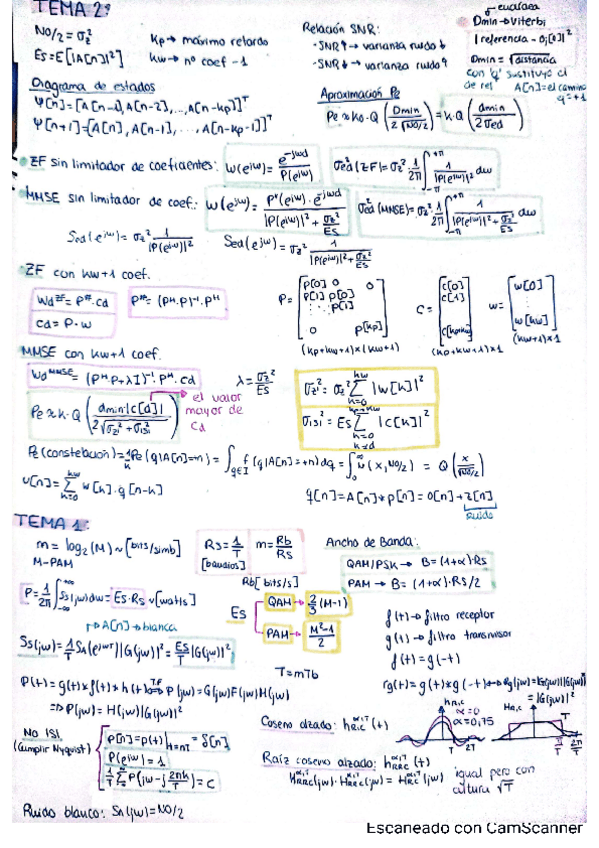 TEMA 2:
No/2 = σz²
Es = E[|A[n]|²]
Kp → máximo retardo
Kw → nº coef -1
Relación SNR:
- SNR↑ → varianza ruido ↓
- SNR↓ → varianza ruido ↑
Dmin → Viterbi
|referencia - oj[0]|²
Dmin = √distancia
con 'q' sustituyo el
de ref A[n] = el camino
q = +1
Diagrama de estados
Ψ[n] = [A[n-1], A[n-2], ..., A[n-kp]]ᵀ
Ψ[n+1] = [A[n], A[n-1], ..., A[n-kp-1]]ᵀ
Aproximación Pe
Pe ≈ k₀·Q(Dmin / 2√No/2) = k·Q(dmin / 2σed)
ZF sin limitador de coeficientes: W(e^jω) = e^-jωd / P(e^jω)
σed²(ZF) = σz²·1/2π ∫-π^+π 1/|P(e^jω)|² dω
MMSE sin limitador de coef.: W(e^jω) = P*(e^jω)·e^-jωd / |P(e^jω)|² + σz²/Es
σed²(MMSE) = σz²·1/2π ∫-π^+π 1/|P(e^jω)|² + σz²/Es dω
Sed(e^jω) = σz² 1/|P(e^jω)|²
Sed(e^jω) = σz² 1/|P(e^jω)|² + σz²/Es
ZF con kw+1 coef.
Wd^ZF = P^#·cd
P^# = (Pᴴ·P)⁻¹·Pᴴ
cd = P·w
P = [p[0] 0 0
p[1] p[0]
p[1]
0 p[kp]]
(kp+kw+1)×(kw+1)
C = [c[0]
c[1]
c[kp+kw]]
(kp+kw+1)×1
w = [w[0]
w[kw]]
(kw+1)×1
MMSE con kw+1 coef.
Wd^MMSE = (Pᴴ·P+λI)⁻¹·Pᴴ·cd
λ = σz²/Es
Pe ≈ k·Q(dmin·|c[d]| / 2√σz'² + σisi²)
el valor
mayor de
cd
σz'² = σz² Σ k=0 ^kw |w[k]|²
σisi² = Es Σ k=0 k≠d ^kp+kw |c[k]|²
u[n] = Σ k=0 ^kw w[k]·q[n-k]
q[n] = A[n]*p[n] = o[n]+z[n]
ruido
TEMA 1:
m = log₂(M) ~ [bits/simb]
M-PAM
Rs = 1/T
[baudios]
m = Rb/Rs
Rb[bits/s]
Ancho de Banda:
QAM/PSK → B = (1+α)·Rs
PAM → B = (1+α)·Rs/2
P = 1/2π ∫-∞^+∞ Ss(jω)dω = Es·Rs [watts]
Es
QAM → 2/3 (M-1)
PAM → M²-1/2
↱ A[n] → blanca
Ss(jω) = 1/T SA(e^jωT)|G(jω)|² = Es/T |G(jω)|²
f(t) → filtro receptor
g(t) → filtro transmisor
f(t) = g(-t)
T = mTb
p(t) = g(t)*f(t)*h(t) T.F P(jω) = G(jω)F(jω)H(jω)
⇒ P(jω) = H(jω)|G(jω)|²
= |G(jω)|²
No ISI
(Cumplir Nyquist)
p[n] = p(t)|t=nT = δ[n]
P(e^jω) = 1
1/T Σ P(jω - j 2πk/T) = C
Coseno alzado: hRC^α,T(t)
hR,C
α=0
α=0,75
2T
HR,C
π/T
2π/T
Raíz coseno alzado: hRRC^α,T(t)
HRRC^α,T(jω)·HRRC^α,T(jω) = HRC^α,T(jω)
igual pero con
altura √T
Ruido blanco: Sn(jω) = No/2
Escaneado con CamScanner